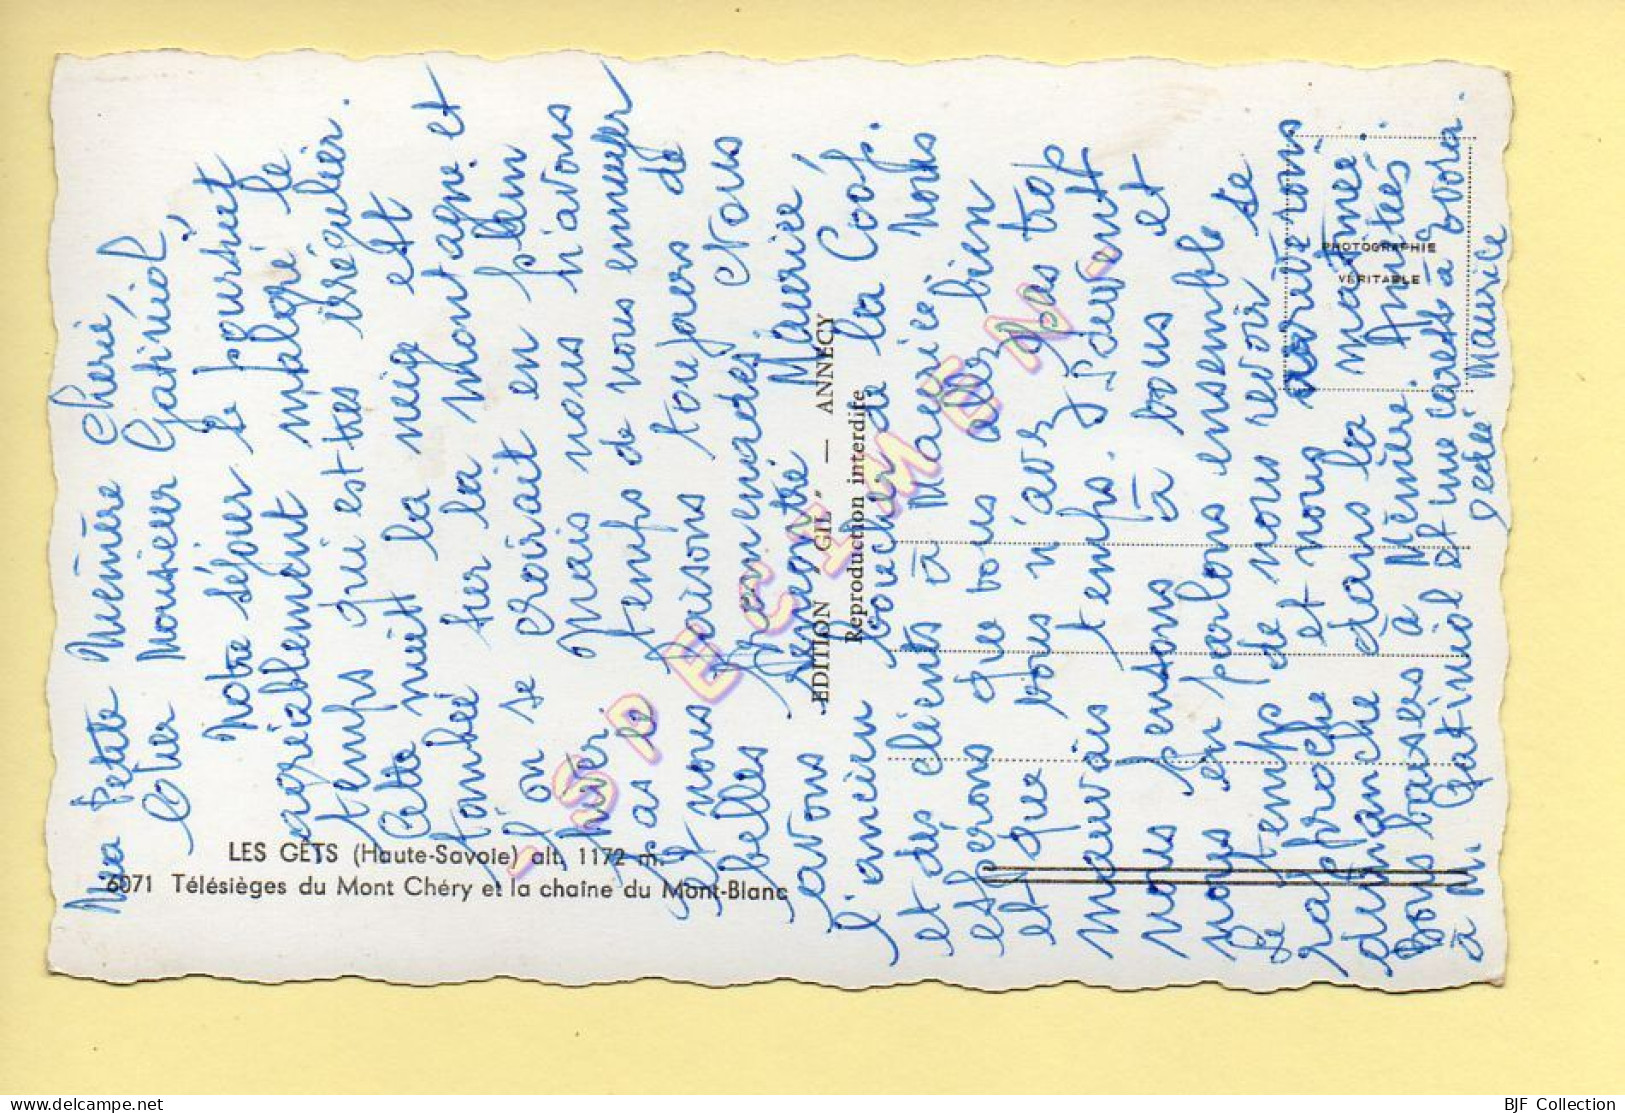 Ma Petite Mémère Chérie,
Cher Monsieur Gatiniol,
Notre séjour se poursuit
agréablement malgré le
temps qui est très irrégulier.
Cette nuit la neige est
tombée sur la montagne et
l'on se croirait en plein
hiver. Mais nous n'avons
pas le temps de nous ennuyer
et nous faisons toujours de
belles promenades. Nous
avons rencontré Maurice
l'ancien boucher de la Coop.
et des clients à Maurice. Nous
espérons que vous allez bien
et que vous n'avez pas trop
mauvais temps. Souvent
nous pensons à vous et
nous en parlons ensemble
Le temps de nous revoir se
rapproche et nous arriverons
dimanche dans la matinée.
Bons baisers à Mémère. Amitiés
à M. Gatiniol et une caresse à Zorra.
Dédé Maurice
LES GETS (Haute-Savoie) alt. 1172 m.
6071 Télésièges du Mont Chéry et la chaîne du Mont-Blanc
EDITION "GIL" — ANNECY
Reproduction interdite
PHOTOGRAPHIE
VÉRITABLE
- SPECIMEN -
BJF Collection